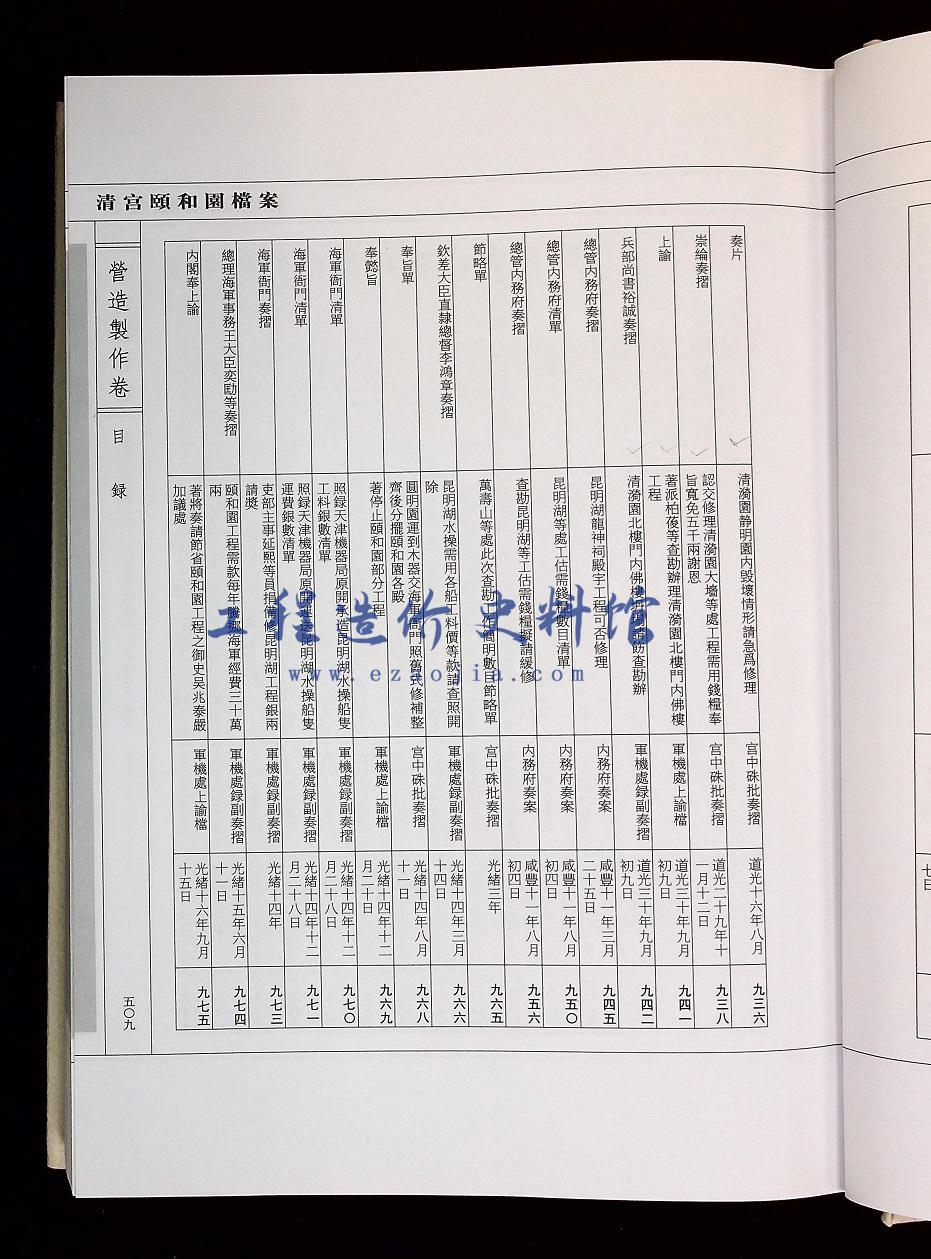 清宮頤和園檔案
奏片
清漪園静明園内毁壞情形請急爲修理
宫中硃批奏摺
道光十六年八月
九三六
崇綸奏摺
認交修理清漪園大墻等處工程需用錢糧奉
旨寬免五千兩謝恩
宫中硃批奏摺
道光二十九年十
一月十二日
九三八
上諭
著派柏葰等查勘辦理清漪園北樓門内佛樓
工程
軍機處上諭檔
道光三十年九月
初九日
九四一
兵部尚書裕誠奏摺
清漪園北樓門内佛樓坍塌請飭查勘辦
軍機處録副奏摺
道光三十年九月
初九日
九四二
總管内務府奏摺
昆明湖龍神祠殿宇工程可否修理
内務府奏案
咸豐十一年三月
二十五日
九四五
總管内務府清單
昆明湖等處工估需錢糧數目清單
内務府奏案
咸豐十一年八月
初四日
九五〇
總管内務府奏摺
查勘昆明湖等工估需錢糧擬請緩修
内務府奏案
咸豐十一年八月
初四日
九五六
節略單
萬壽山等處此次查勘工作簡明數目節略單
宫中硃批奏摺
光緒三年
九六五
欽差大臣直隸總督李鴻章奏摺
昆明湖水操需用各船工料價等款請查照開
除
軍機處録副奏摺
光緒十四年三月
十四日
九六六
奉旨單
圓明園運到木器交海軍衙門照舊式修補整
齊後分擺頤和園各殿
宫中硃批奏摺
光緒十四年八月
十一日
九六八
奉懿旨
著停止頤和園部分工程
軍機處上諭檔
光緒十四年十二
月二十日
九六九
海軍衙門清單
照録天津機器局原開承造昆明湖水操船隻
工料銀數清單
軍機處録副奏摺
光緒十四年十二
月二十八日
九七〇
海軍衙門清單
照録天津機器局原開運送昆明湖水操船隻
運費銀數清單
軍機處録副奏摺
光緒十四年十二
月二十八日
九七一
海軍衙門奏摺
吏部主事延熙等員捐備修昆明湖工程銀兩
請獎
軍機處録副奏摺
光緒十四年
九七三
總理海軍事務王大臣奕劻等奏摺
頤和園工程需款每年騰挪海軍經費三十萬
兩
軍機處録副奏摺
光緒十五年六月
十一日
九七四
内閣奉上諭
著將奏請節省頤和園工程之御史吴兆泰嚴
加議處
軍機處上諭檔
光緒十六年九月
十五日
九七五
營造製作卷
目録
五〇九
七日
工程造价史料馆
www.ezaojia.com